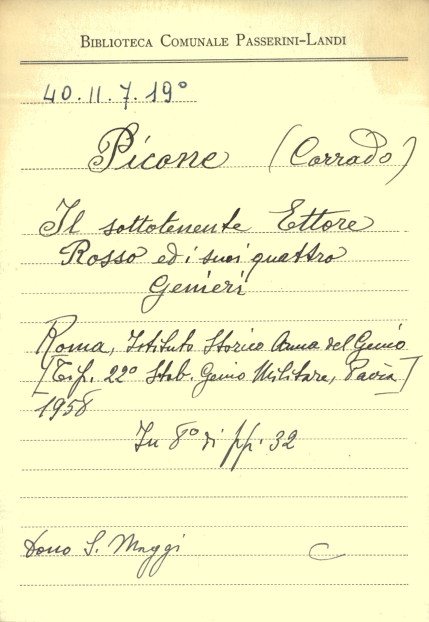 BIBLIOTECA COMUNALE PASSERINI-LANDI
40.II.7.19°
Picone (Corrado)
Il sottotenente Ettore
Rosso ed i suoi quattro
Genieri
Roma, Istituto Storico Arma del Genio
[Tip. 22° Stab. Genio Militare, Pavia]
1958
In 8° di pp. 32
Dono S. Maggi
C